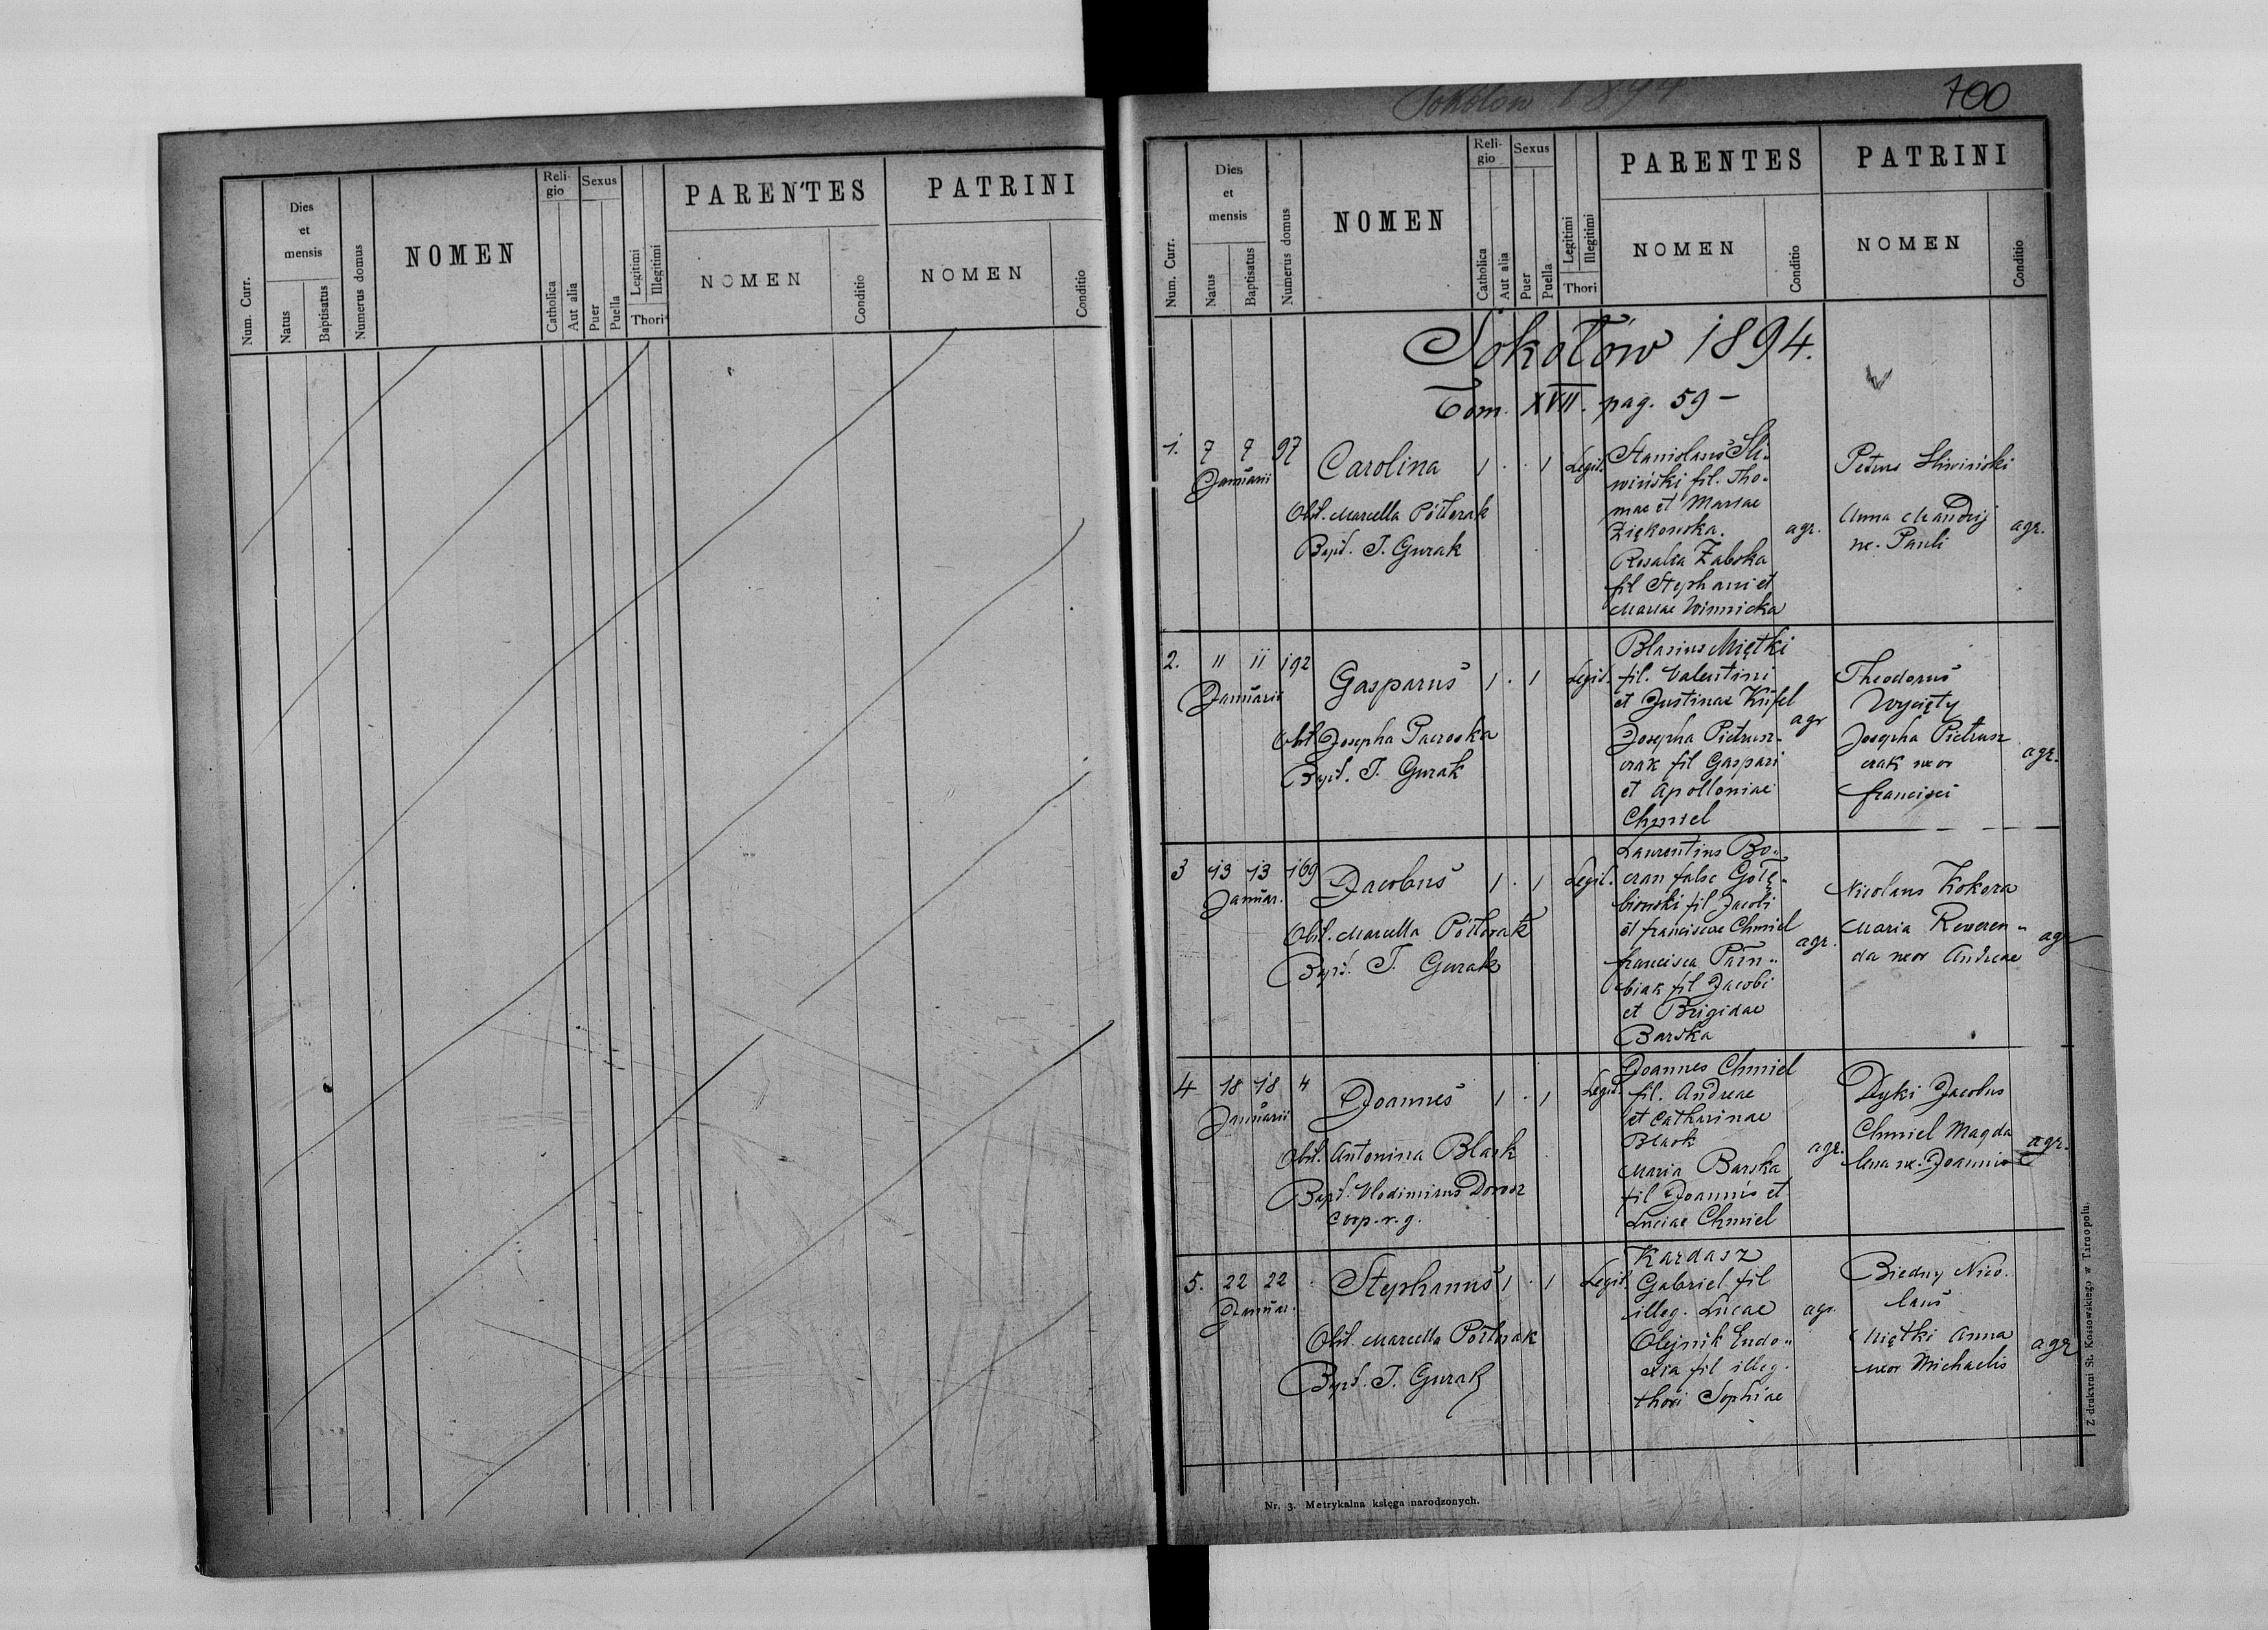 Num. Curr.
Dies et mensis
Natus
Baptisatus
Numerus domus
NOMEN
Religio
Catholica
Aut alia
Sexus
Puer
Puella
Legitimi
Illegitimi
Thori
PARENTES
NOMEN
Conditio
PATRINI
NOMEN
Conditio
Sokołów 1894
700
Num. Curr.
Dies
et
mensis
Natus
Baptisatus
Numerus domus
NOMEN
Reli-
gio
Catholica
Aut alia
Sexus
Puer
Puella
Legitimi
Illegitimi
Thori
PARENTES
NOMEN
Conditio
PATRINI
NOMEN
Conditio
Sokołów 1894.
Tom. XVII. pag. 59 –
1. 7 7 97 Carolina 1 . . 1 Legit.
Januarii
Obst. Marcella Półtorak
Bapt. T. Gurak
Stanislaus Śli-
wiński fil. Tho-
mae et Mariae
Ziękowska.
Rosalia Zabska
fil Stephani et
Mariae Winnicka
agr.
Petrus Śliwiński
Anna Mandrij
ux. Pauli
agr.
2. 11 11 192 Gasparus 1 . 1 Legit.
Januarii
Obst. Josepha
Bapt. T. Gurak
Blasius Miętki
fil. Valentini
et Justinae Kufel
Josepha Pietrusz-
czak fil Gaspari
et Apolloniae
Chmiel
agr
Theodorus
Wycięty
Josepha Pietrusz
czak uxor
Francisci
agr.
3 13 13 169 Jacobus 1 . 1 Legit.
Januar.
Obst. Marcella Półtorak
Bapt. T. Gurak
Laurentius Bo-
cran false Gołę-
biowski fil Jacobi
et Franciscae Chmiel
Francisca Parn-
biak fil Jacobi
et Brigidae
Barska
agr.
Nicolaus Kokora
Maria Reweren-
da uxor Andreae
agr
4 18 18 4 Joannes 1 . 1 Legit.
Januarii
Obst. Antonina Blask
Bapt. Vlodimirus Dorosz
coop. r. g.
Joannes Chmiel
fil. Andreae
et Catharinae
Blask
Maria Barska
fil Joannis et
Luciae Chmiel
agr.
Dyki Jacobus
Chmiel Magda
lena ux. Joannis
agr.
5. 22 22 . Stephanus 1 . 1 Legit.
Januar.
Obst. Marcella Półtorak
Bapt. T. Gurak
Kardasz
Gabriel fil
illeg. Lucae
Olejnik Eudo-
xia fil illeg.
thori Sophiae
agr.
Biedny Nico-
laus
Miętki Anna
uxor Michaelis
agr
Nr. 3. Metrykalna księga narodzonych.
Z drukarni St. Kossowskiego w Tarnopolu.